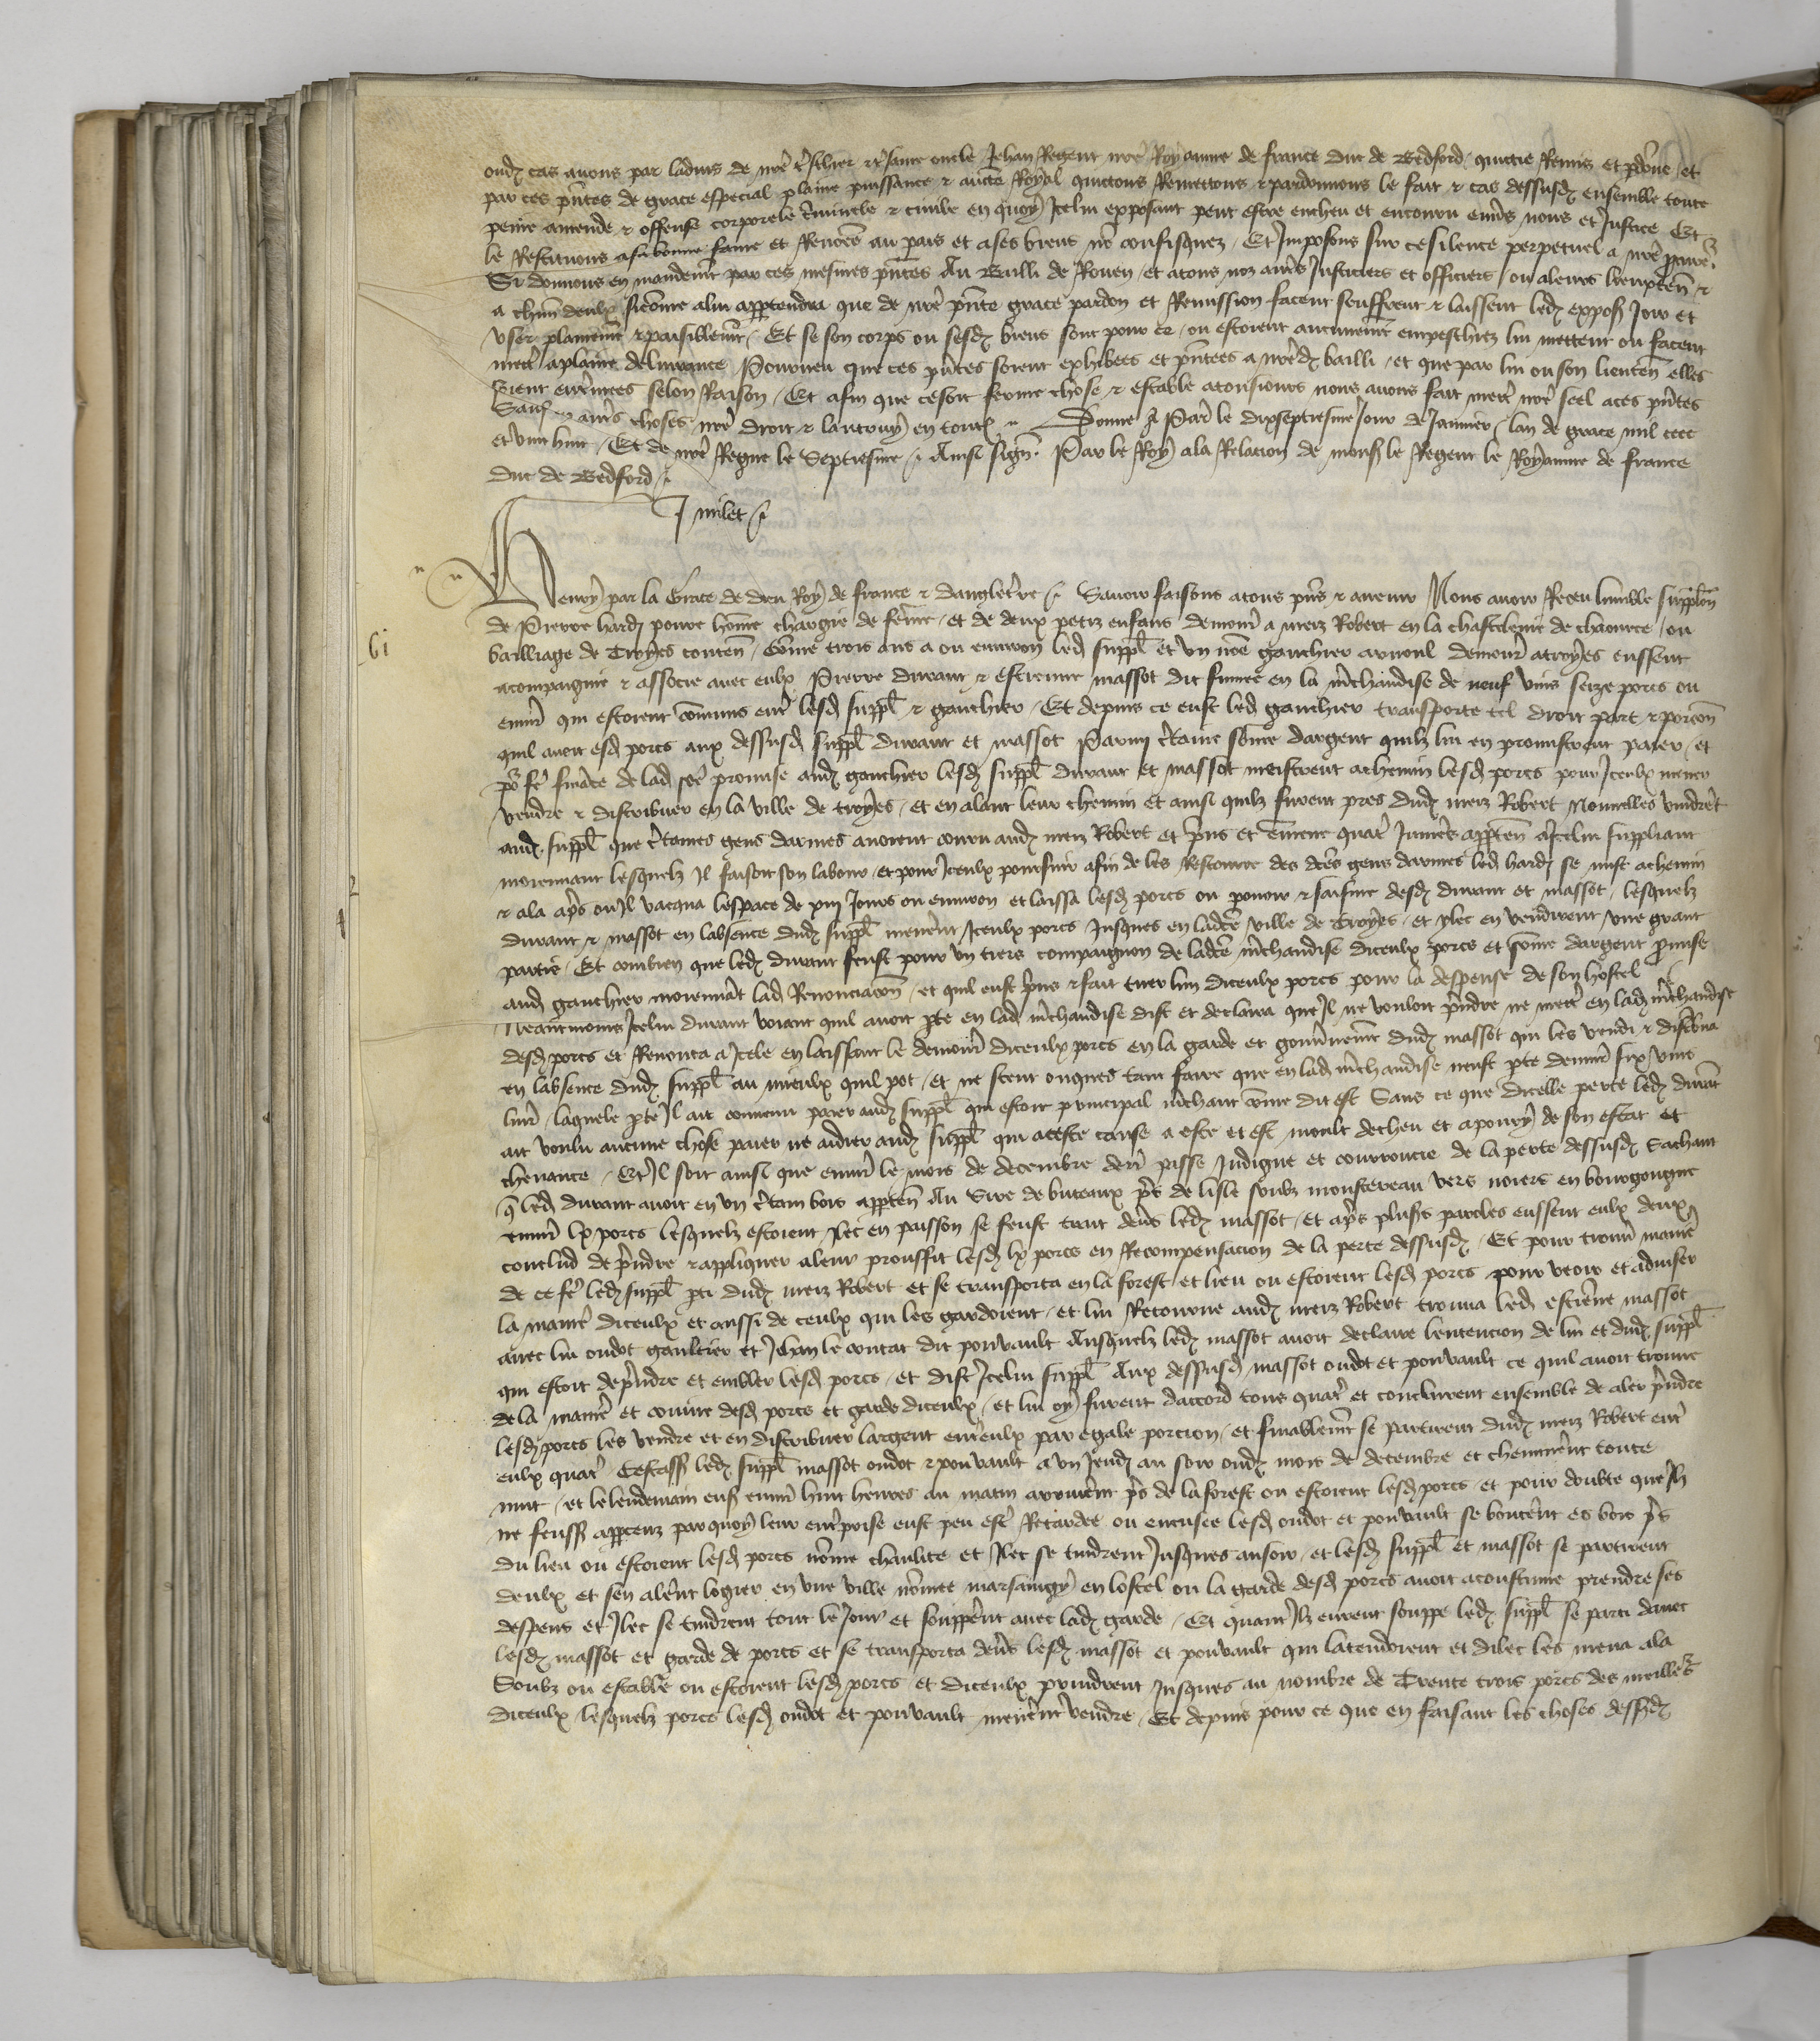 oud cas avons par ladvis de nre treschier et tresame oncle Jehan Regent nre Royaume de france duc de Bedford quictie Remis et pdone et
par ces pntes de grace especial plaine puissance et aucte Royal quictons Remettons et pardonnons le fait et cas dessusd ensemble toute
peine amende et offense corporele criminele et civile en quoy Icelui exposant peut estre encheu et encouru envers nous et Justice Et
le Restituons a sa bonne fame et Renomee au pais et a ses biens non confisquez Et Imposons sur ce silence perpetuel a nre procur
Si donnons en mandemt par ces mesmes pntes Au Bailli de Rouen et a tous noz autres Justiciers et officiers ou a leurs lieuxten et
a chun deulx sicome a lui appartendra que de nre pnte grace pardon et Remission facent seuffrent et laissent led expos Joir et
user plainemt et paisiblemt Et se son corps ou sesd biens sont pour ce ou estoient aucunemt empeschiez lui mettent ou facent
mettre a plaine delivrance Pourveu que ces pntes soient exhibees et pntees a nred bailli et que par lui ou son lieuten elles
soient enterinees selon Raison Et afin que ce soit ferme chose et estable a tousiours nous avons fait mettre nre scel a ces pntes
Sauf en autres choses nre droit et lautruy en toutes Donne a Paris le dixseptiesme Jour de Janvier lan de grace mil cccc
et vint huit Et de nre Regne le Septiesme Ainsi signe Par le Roy a la Relacion de mons le Regent le Royaume de france
duc de Bedford
J milet
Henry par la Grace de dieu Roy de france et dangleterre Savoir faisons a tous pns et avenir Nous avoir Receu lumble supplon
de Pierre hard povre home chargie de feme et de deux petiz enfans demour a merz Robert en la chastelenie de chaource ou
bailliage de Troyes conten Come trois ans a ou environ led suppl et un nome gauchier arnoul demour a troyes eussent
acompaignie et associe avec eulx Pierre durant et estienne massot dit finnee en la mchandise de neuf vins seize porcs ou
environ qui estoient comuns entre lesd suppl et gauchier Et depuis ce eust led gauchier transporte tel droit part et porcion
quil avoit esd porcs aux dessusd suppl durant et massot Parmi ctaine some dargent quilz lui en promistrent paier et
pour fe finace de lad some promise aud gauchier lesd suppl durant et massot meistrent a chemin lesd porcs pour Iceulx mener
vendre et distribuer en la ville de troyes et en alant leur chemin et ainsi quilz furent pres dud merz Robert Nouvelles vindret
aud suppl que ctaines gens darmes avoient couru aud merz Robert et prins et emene quatre Jumens apparten a Icelui suppliant
moiennant lesquelz Il faisoit son labour et pour Iceulx poursuir afin de les Rescourre des dces gens darmes led hard se mist a chemin
et ala apres ou Il vacqua lespace de xiij Jours ou environ et laissa lesd porcs ou povoir et saisine desd durant et massot lesquelz
durant et massot en labsence dud suppl menerent Iceulx porcs Jusques en ladce ville de Troyes et ylec en vendirent une grant
partie Et combien que led durant feust pour un tiers compaignon de ladce mchandise diceulx porcs et some dargent pmise
aud gauchier moiennat lad Renonciacion et quil eust prins et fait tuer lun diceulx porcs pour la despense de son hostel
Neantmoins Icelui durant voiant quil avoit pte en lad mchandise dist et declaira que Il ne vouloit prendre ne mettre en lad mchandise
desd porcs et Renonca a Icele en laissant le demour diceulx porcs en la garde et gouvernemt dud massot qui les vendi et distribua
en labsence dud suppl au mieulx quil pot et ne sceut onques tant faire que en lad mchandise neust pte denviron six vins
livres laquele pte Il ait convenu paier aud suppl qui estoit principal mchant come dit est Sans ce que dicelle perte led durat
ait voulu aucune chose paier ne aidier aud suppl qui a ceste cause a este et est moult decheu et apovry de son estat et
chevance Et Il soit ainsi que environ le mois de decembre derr passe Indigne et courroucie de la perte dessusd Sachant
q led durant avoit en un ctain bois apparten Au Sire de buteaux pres de lisle soubz monstereau vers noiers en bourgongne
environ lx porcs lesquelz estoient ylec en paisson se feust trait devers led massot et apres pluss paroles eussent eulx deux
conclud de prendre et appliquer a leur prouffit lesd lx porcs en Recompensacion de la perte dessusd Et pour trouver maniere
de ce fe led suppl pti dud merz Robert et se transporta en la forest et lieu ou estoient lesd porcs pour veoir et adviser
la maniere diceulx et aussi de ceulx qui les gardoient et lui Retourne aud merz Robert trouva led estienne massot
avec lui oudot gaultier et Jehan le contat dit ponvault Ausquelz led massot avoit declaire lentencion de lui et dud suppl
qui estoit de prendre et embler lesd porcs et dist Icelui suppl Aux dessusd massot oudot et ponvault ce quil avoit trouve
de la maniere et comune desd porcs et garde diceulx et lui oy furent daccord tous quatre et conclurent ensemble de aler prendre
lesd porcs les vendre et en distribuer largent entreulx par egale porcion et finablemt se partirent dud merz Robert entre
eulx quatre Cestass led suppl massot oudot et ponvault a un Jeudi au soir oud mois de decembre et cheminerent toute
nuit et le lendemain eus environ huit heures au matin arriverent pres de la forest ou estoient lesd porcs et pour doubte que Ilz
ne feuss apperceuz par quoy leur entreprise eust peu estre Retardee ou encusee lesd oudot et ponvault se bouterent es bois pres
du lieu ou estoient lesd porcs nome chaulite et ylec se tindrent Jusques au soir et lesd suppl et massot se partirent
deulx et sen alerent logier en une ville nomee marsaingy en lostel ou la garde desd porcs avoit acoustume prendre ses
despens et ylec se tindrent tout le Jour et soupperent avec lad garde Et quant Ilz eurent souppe led suppl se parti davec
lesd massot et garde de porcs et se transporta devers lesd massot et ponvault qui latendoient et dilec les mena a la
Soubz ou estable ou estoient lesd porcs et diceulx prindrent Jusques au nombre de Trente trois porcs des meilleurs
diceulx lesquelz porcs lesd oudot et ponvault menerent vendre Et depuis pour ce que en faisant les choses dessusd
61